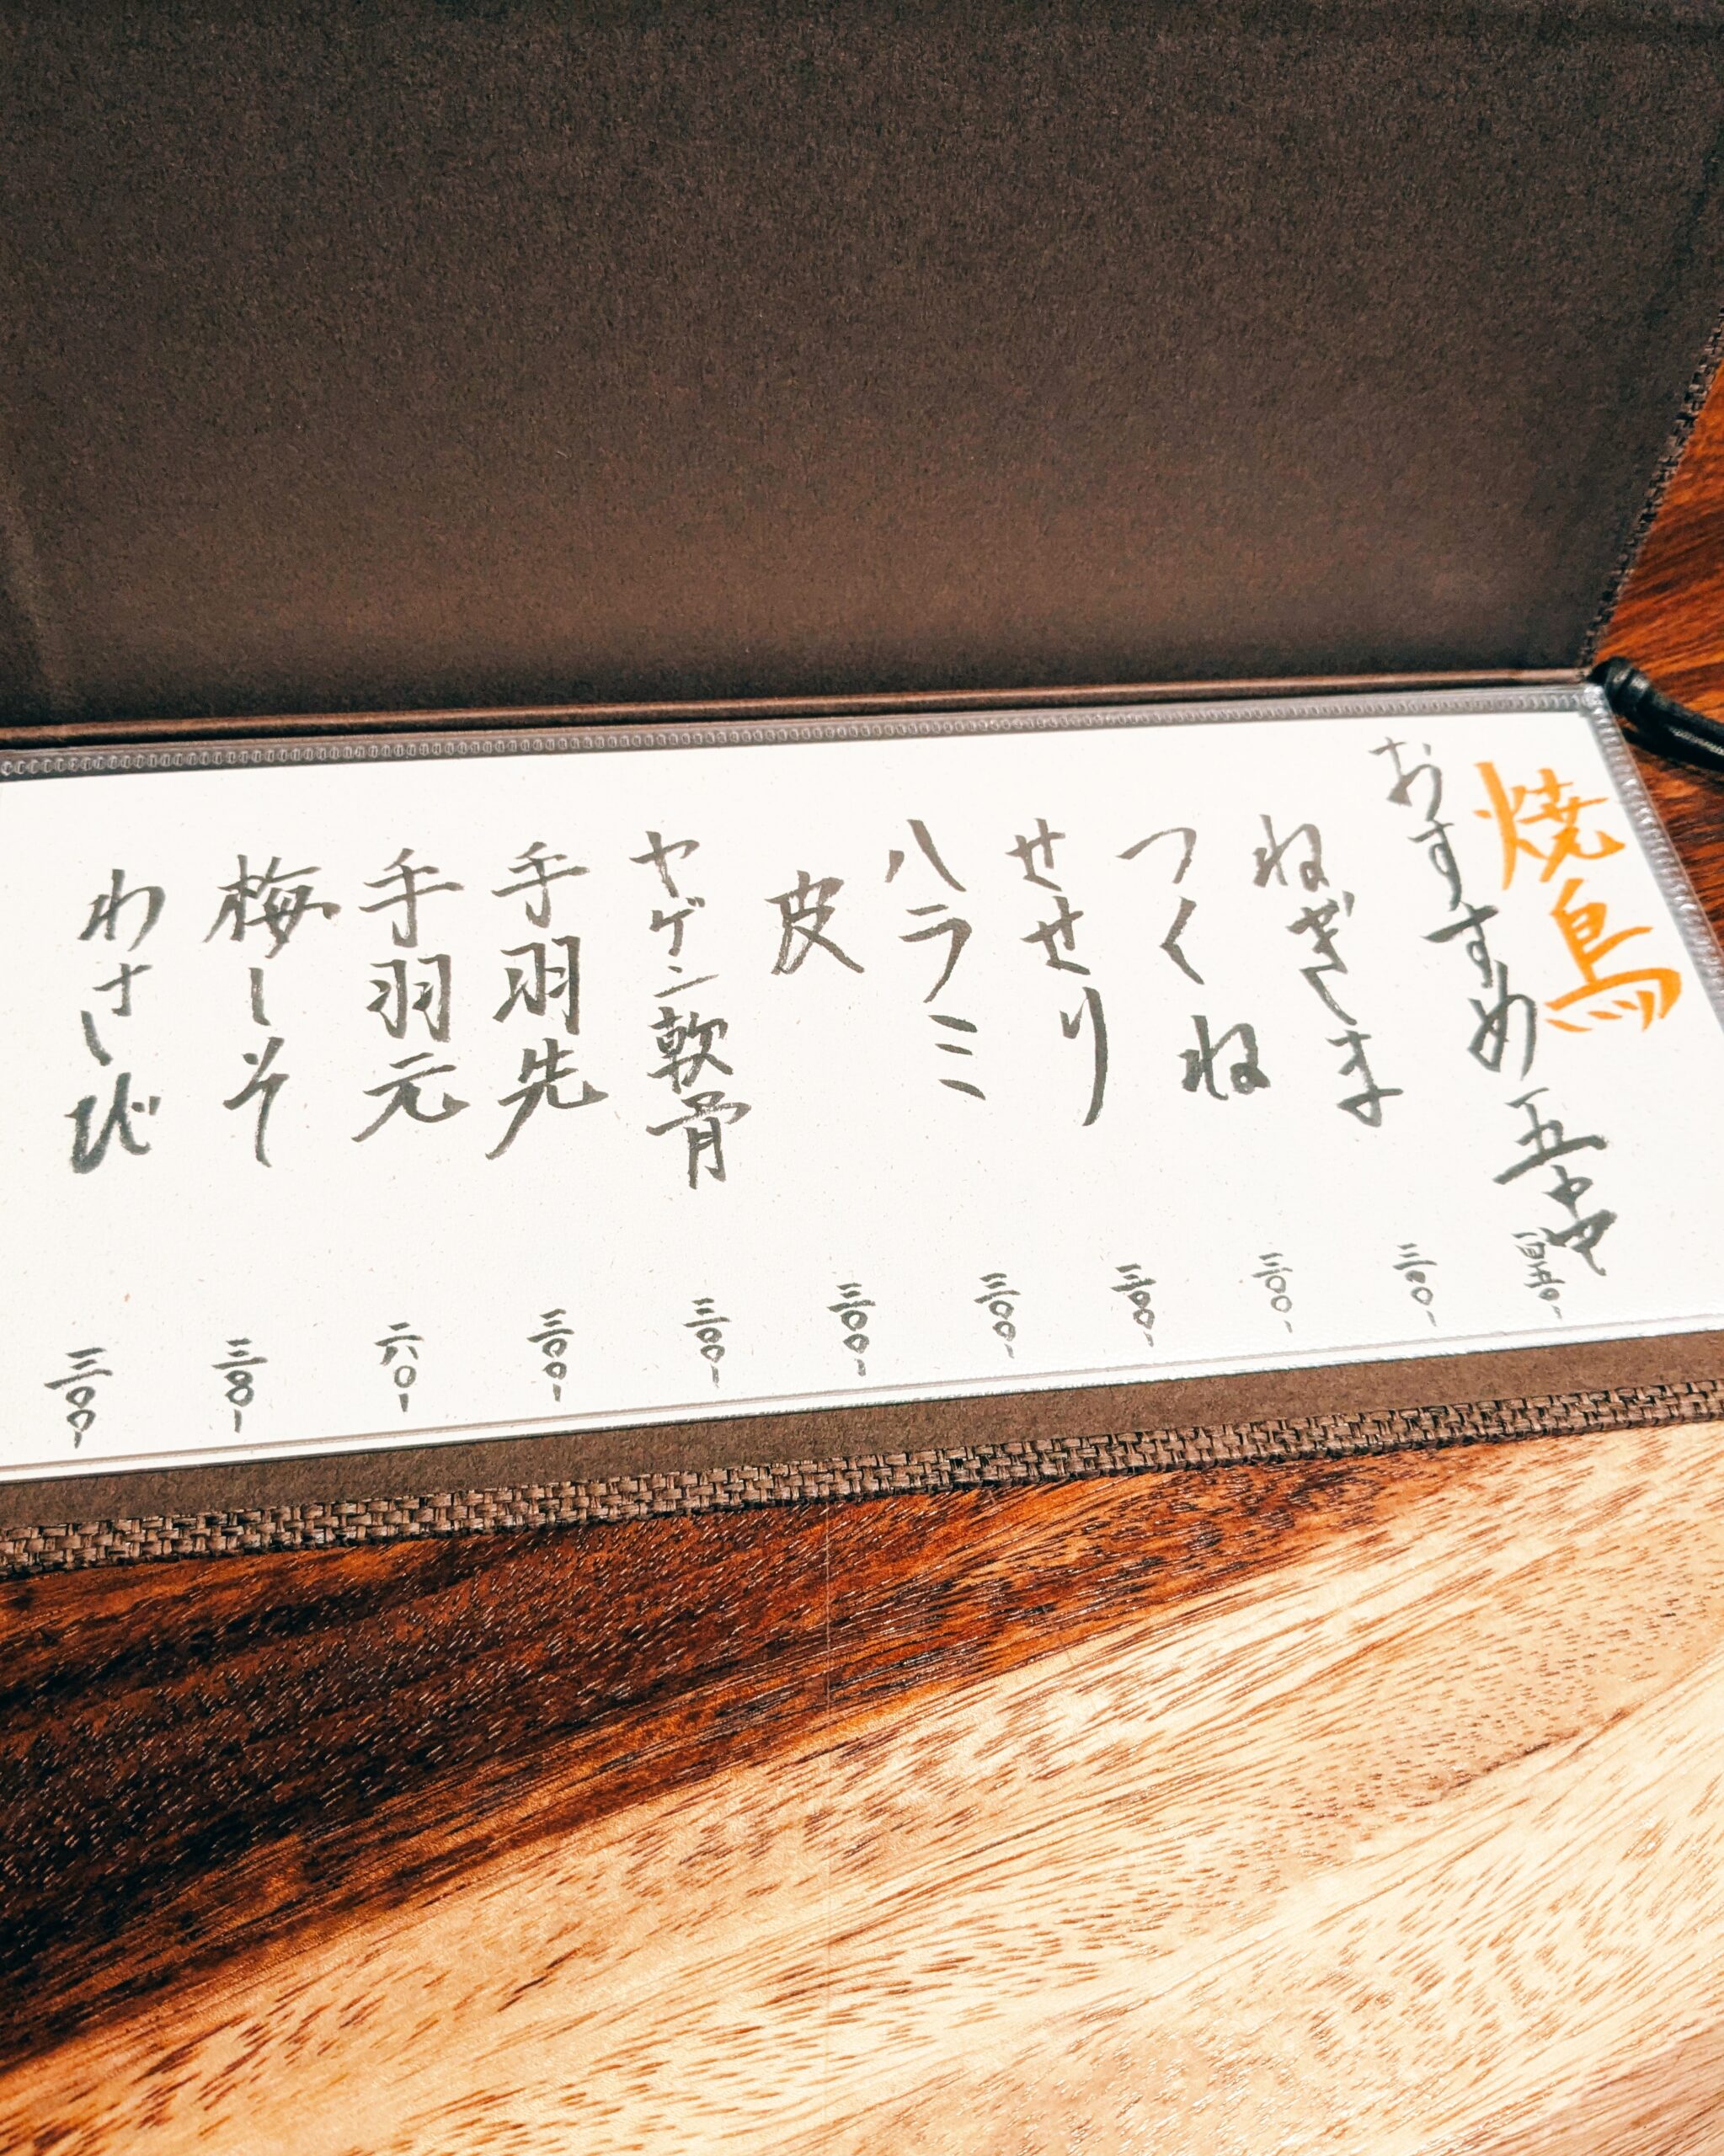 焼鳥
おすすめ五串
ねぎま 三〇〇-
つくね 三〇〇-
せせり 三〇〇-
ハラミ 三〇〇-
皮 三〇〇-
ヤゲン軟骨 三〇〇-
手羽先 三〇〇-
手羽元
梅しそ 三〇〇-
わさび 三〇〇-